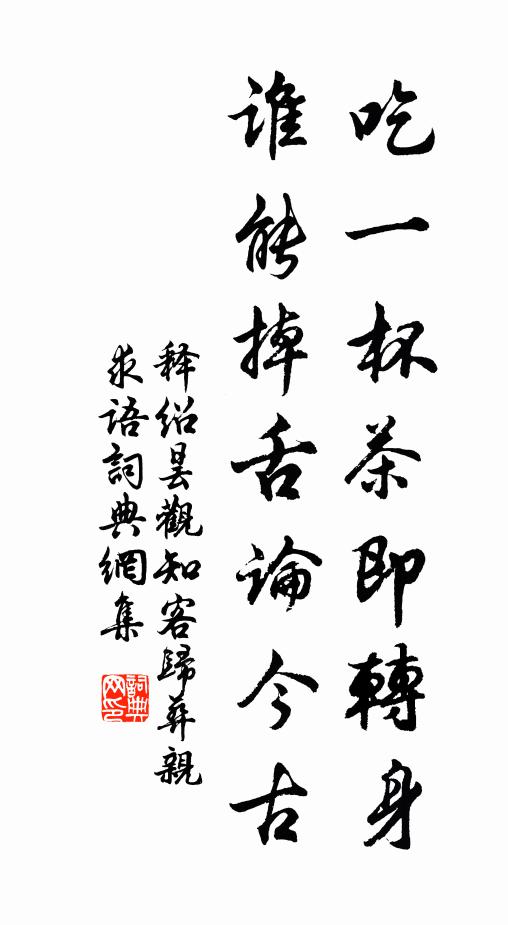 吃一杯茶即轉身
誰能掉舌論今古
釋紹曇觀知客歸葬親
求語詞典網集
詞典網印